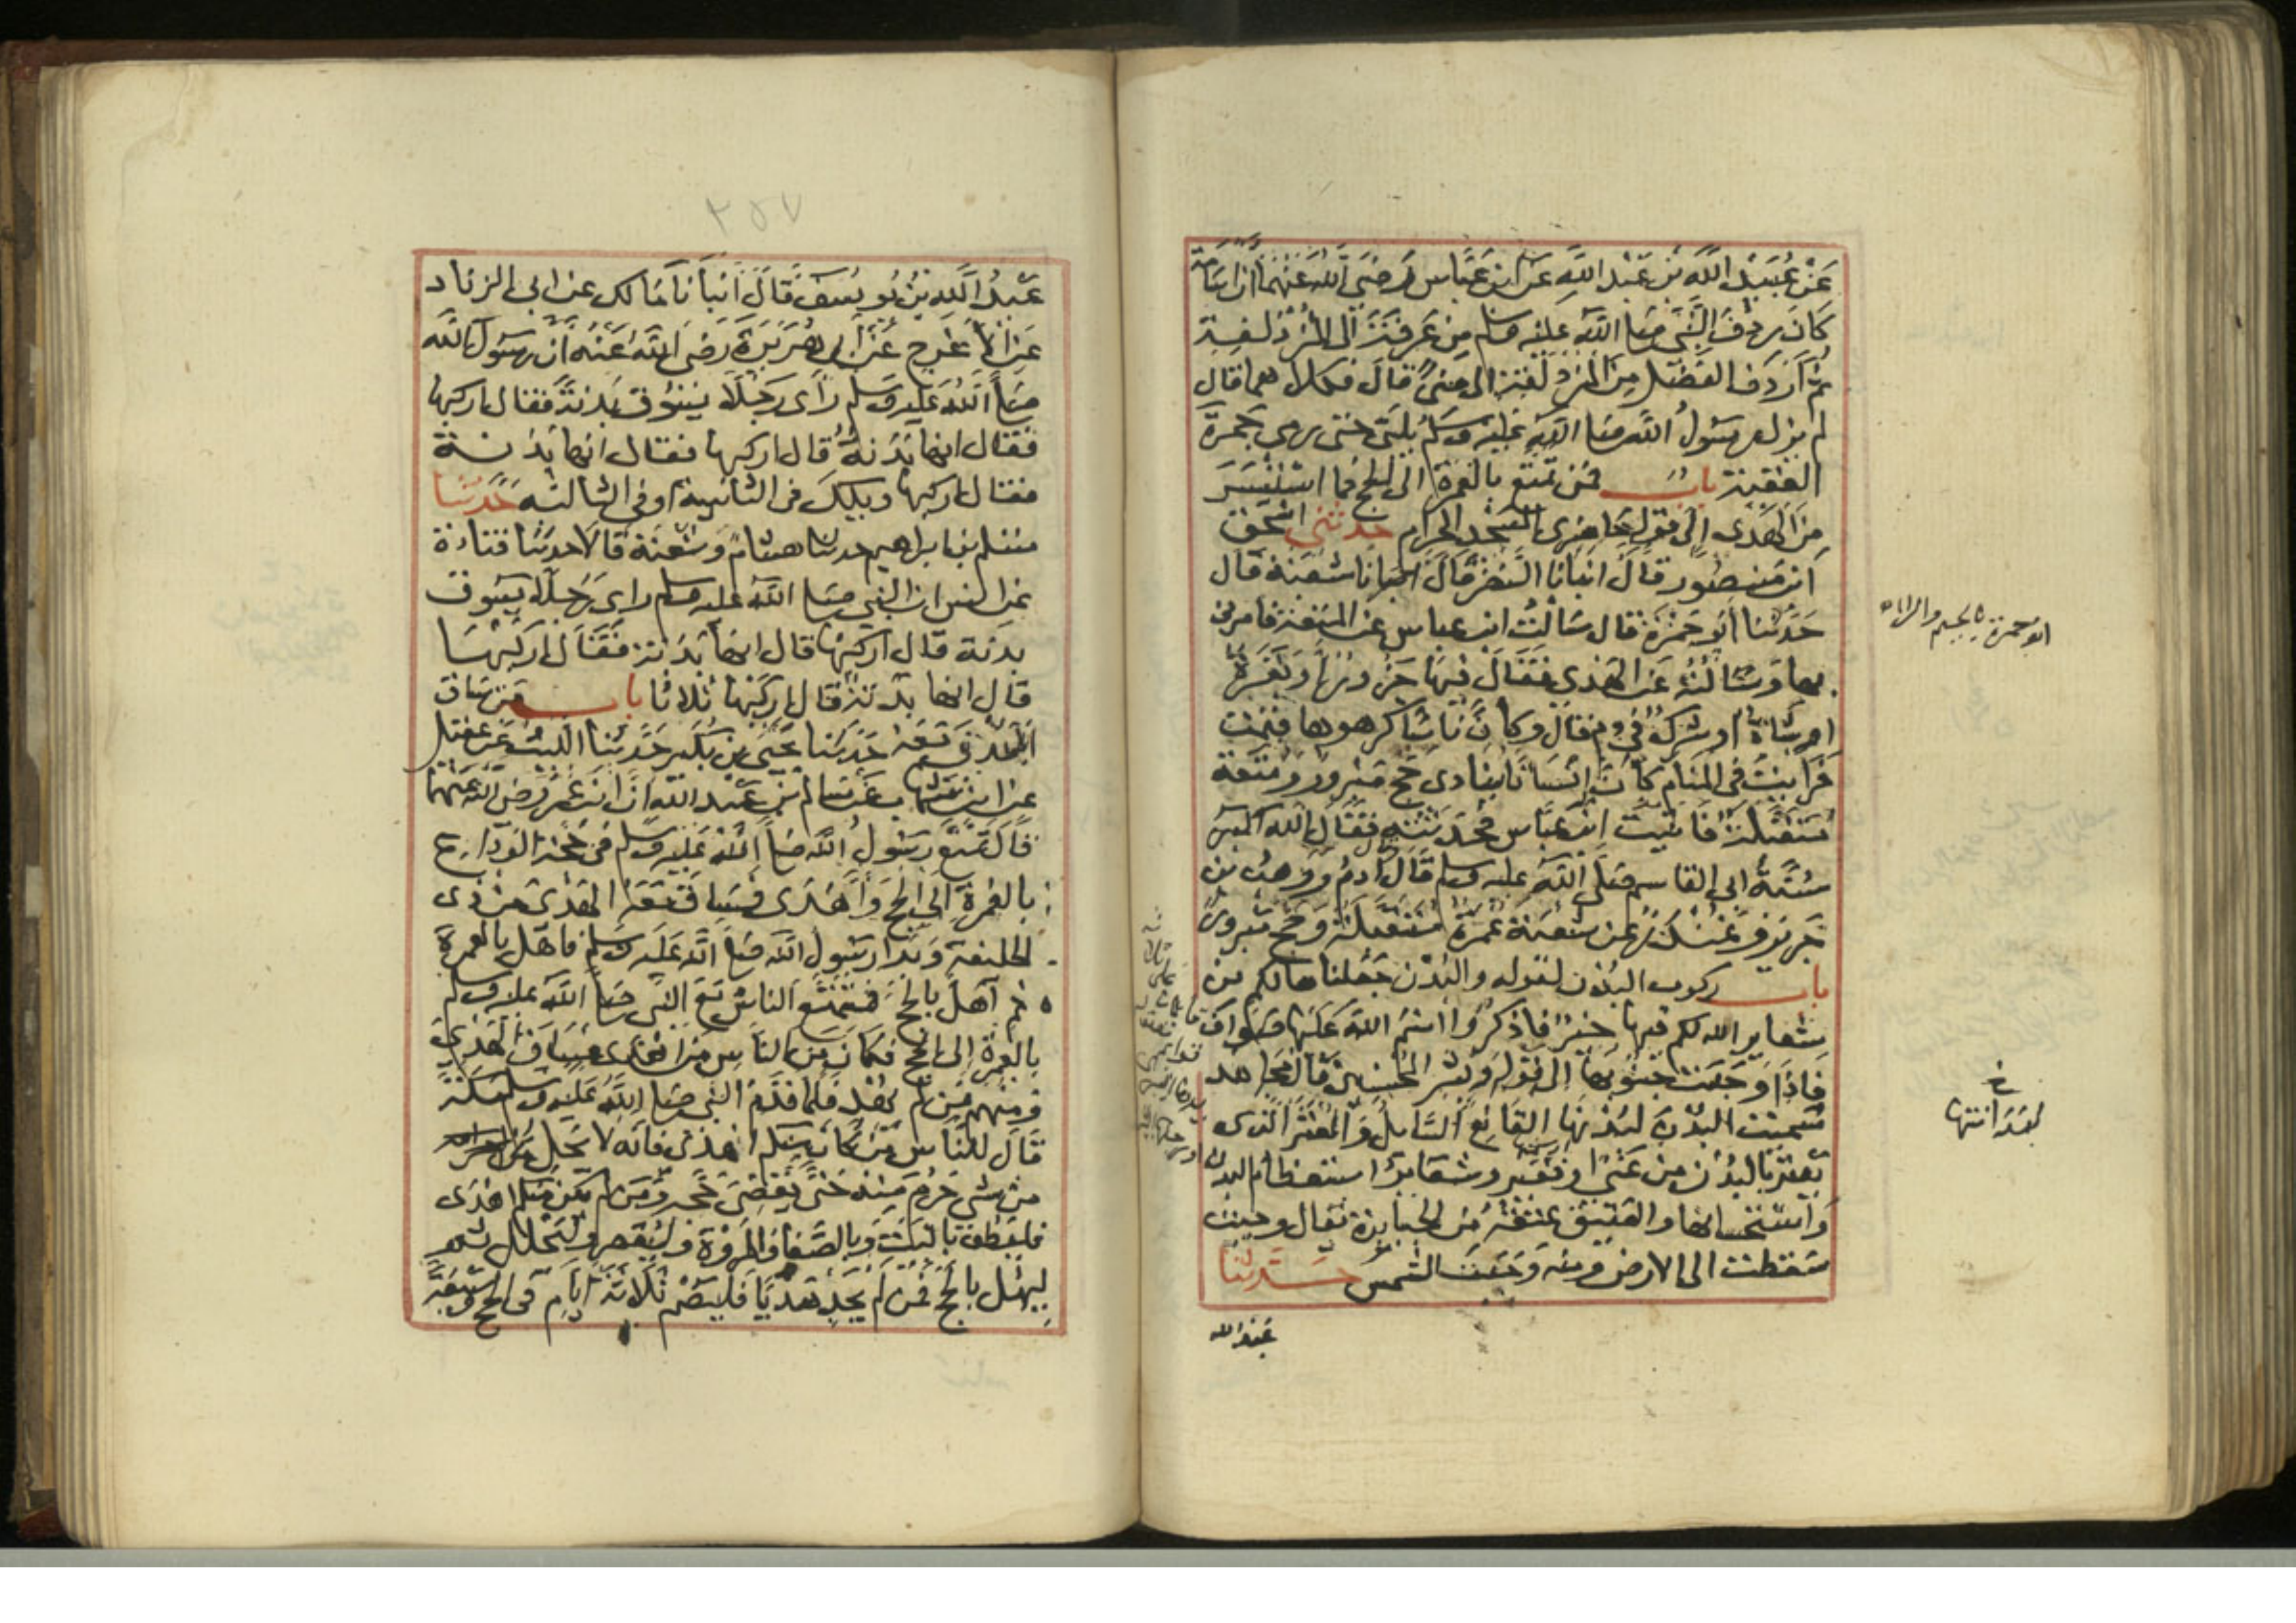 عَنْ عُبَيْدِ اللّه بْن عَبْد اللّهِ عَن ابن عَبَّاس رَضِيَ اللّهُ عَنْهُمَا ان اسَامَة
كَانَ رِدْفَ النَّبِي صَلى اللّه عليه وسلم مِن عَرفَةَ الى المُزْدَلفِة
ثُمَّ اَرْدَفَ الفَضْل مِنَ المُزدَلِفَةِ الى مِنىً قَالَ فكلاهما قال
لم يزل رسَولُ اللّه صَلى اللّهِ عَليْه وسَلم يُلَبّى حَتى رمى جَمرَة
العَقَبة بابُ فمَن تمتّع بالعُمرَة الى الحج فمَا اسْتَيْسَرَ
مِنَ الهَدْى اِلى قولِه حَاضِرى المَسْجد الحرَام حدثنى اسْحَق
ابن مَنصُور قالَ انبَانا النَّضْر قالَ انبَانا شعبَة قال
حَدَّثنا أبُو جَمْرَة قال سَالْتُ ابن عباس عَن المتعَة فامرنى
بها وَسَالْتُه عَن الهَدْى فقَالَ فيهَا جَزُورٌ اَو بَقَرَة
اَو شَاة اَو شِرْكٌ في دم قال وكأنّ ناسًا كرهوها فنمت
فرَايتُ فى المنام كاَنّ اِنسَانا ينادى حَج مَبْرور ومُتعَة
مُتَقَبَّلَة فَاتَيت ابن عبَّاس فحَدثته فقَال اللّه اكبر
سُنَّةُ ابى القاسم صَلى اللّه عليه وسلم قَال آدمُ ووَهبُ بن
جَرير وغُنْدَر عن شعبَة عُمرَة مُتَقَبلَة وحَج مبرور
باب ركوب البُدن لقوله والبُدْن جَعَلناها لكم من
شعاير اللّه لكم فيها خيرٌ فاذكرُوا اسْمَ اللّه عَليْهَا صَوَاف
فَاِذَا وَجَبَت جُنُوبهَا اِلى قَولِه وَبَشر المُحسنين قَال مجَاهد
سُميت البُدْنَ لبُدْنهَا القَانِع السَّايلُ وَالمعْتَر الذى
يَعْتر بالبُدْن مِن غنى اَو فقير وشعَاير استعظام البدن
وَاسْتحْسانها والعَتيق عتقه مِن الجبابرَة يقال وجبت
سَقطت الى الارض ومنه وَجَبَت الشمس حَدثنا
عَبْد اللّه
ابو جمرة بالجيم والراء
خ
لبَدَانتها
٢٥٧
عَبْدُ اللّهِ بْنُ يُوسُفَ قَالَ اَنبَانَا مَالك عن ابى الزناد
عَن الاَعْرَج عَنْ اَبى هُرَيْرَةَ رَضى اللّه عَنْهُ اَنّ رسُول اللّه
صَلى اللّهُ عَليه وسَلم رَاَى رَجُلًا يسُوق بَدَنَة فقال اركبها
فقال انها بَدَنةٌ قال اركبها فقال انها بَدَنة
فقال اركبها ويلكَ فى الثانية او فى الثالثه حَدَّثنا
مُسْلم بن ابراهيم حدثنا هشام وشعبَة قالا حدثنا قتادة
عن انس ان النبى صَلى اللّه عليه وسلم راى رَجلًا يَسُوق
بدنة قال اركبهَا قال انها بَدَنة فقَال اركبهَا
قال انها بدنة قال اركبْهَا ثلاثا باب مَن سَاق
البُدْن مَعَهُ حَدثنا يَحْيَى بن بُكير حَدّثنا الليْث عَن عقيل
عن ابن شهَاب عَن سَالم بْنِ عَبْد اللّه ان ابن عُمَر رَضى اللّه عنهما
قال تَمَتَّعَ رَسُولُ اللّه صَلى اللّهُ عَليْه وسَلم فى حَجة الوَدَاع
بالعُمرَة اِلى الحَج وَاَهْدَى فسَاق مَعَه الهَدْىَ مِن ذى
الحُليفة وَبَدا رَسُول اللّه صَلى اللّه عَليه وسَلم فاَهَل بالعُمرة
ثم اَهلَّ بالحج فتمَتعَ الناسُ مَع النبى صَلى اللّه عَليه وسَلم
بالعمرة اِلى الحج فكان مِن الناس مَن اهدى فسَاق الهَدْىَ
ومنهم مَن لم يُهْد فلما قدم النبى صلى اللّه عَليه وسَلم مَكة
قَال للناس مَنْ كانَ منكم اهدَى فانه لا يَحل
مِن شى حَرُمَ مِنه حَتى يَقْضى حَجه وَمَن لم يكن منكم اهْدَى
فليَطُف بالبَيْت وبالصَّفا والمرْوَة وليُقَصر وليَحْلل ثم
لِيُهِلَّ بالحج فَمَن لَم يَجد هَديًا فَليَصُم ثَلاثَة ايَام فى الحج وسَبْعَة